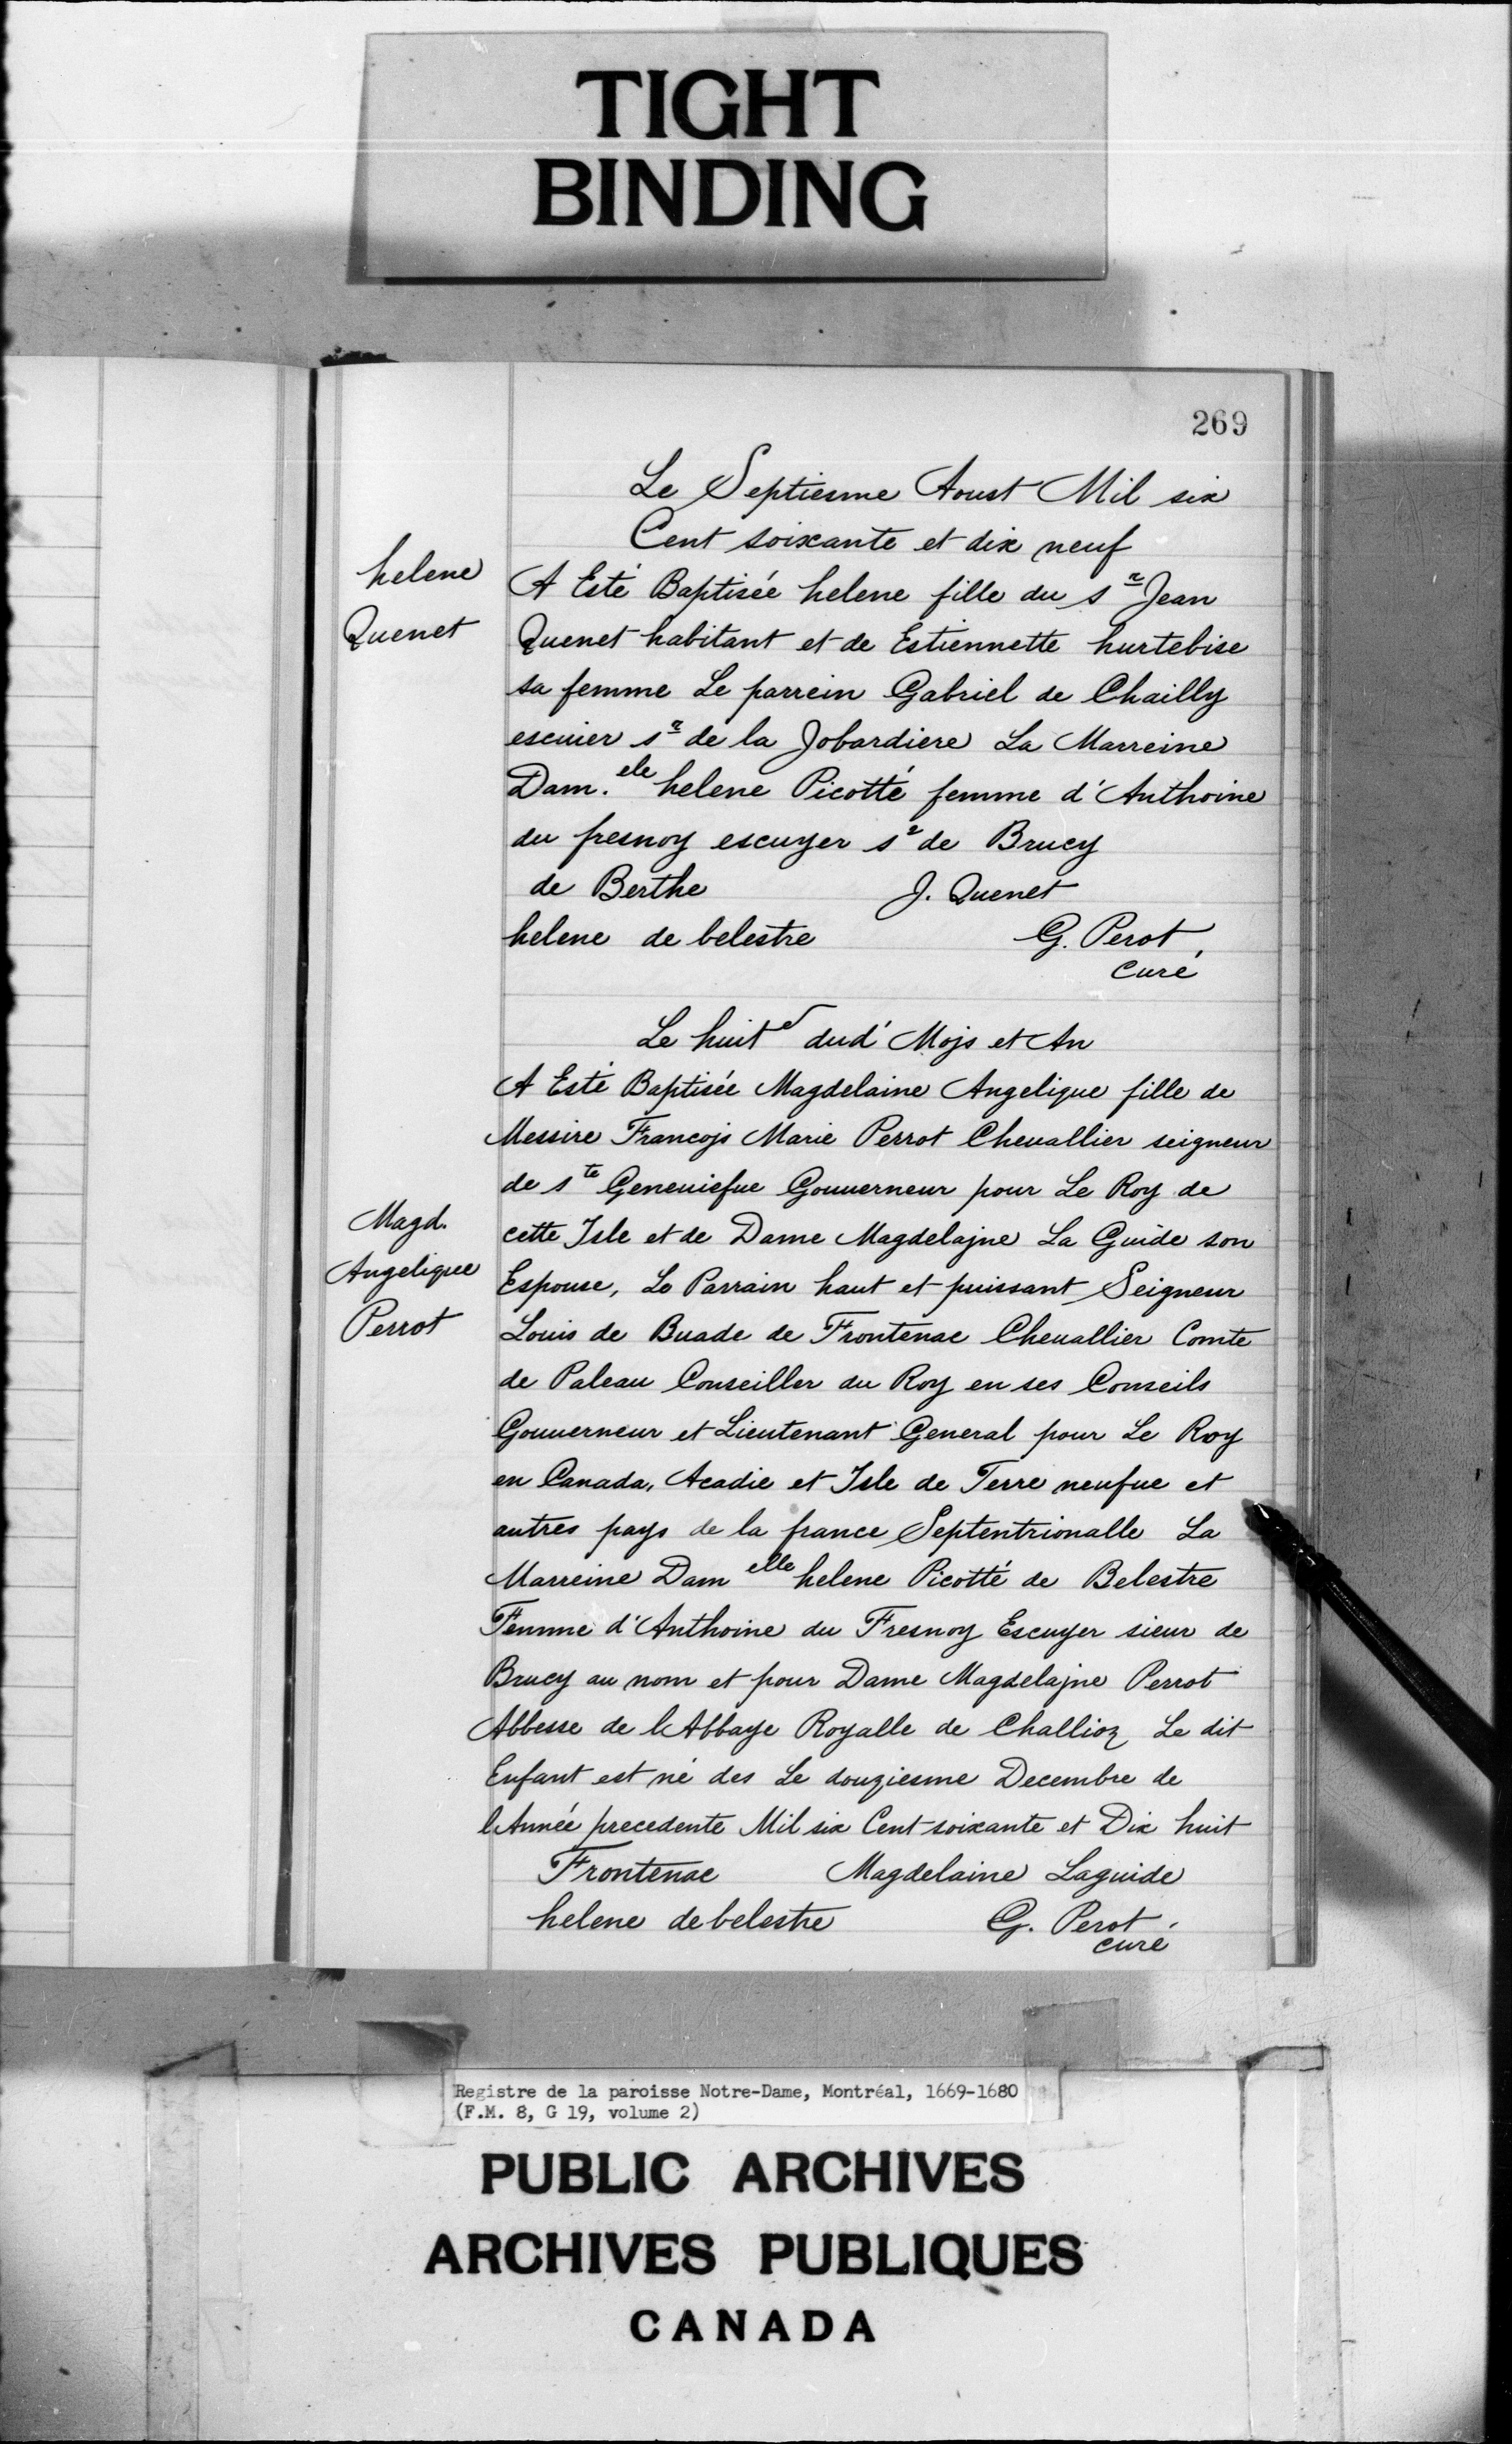 TIGHT
BINDING
269
Le Septiesme Aoust Mil six
Cent soixante et dix neuf
helene
Quenet
A Esté Baptisée helene fille du sr Jean
Quenet habitant et de Estiennette hurtebise
sa femme Le parrein Gabriel de Chailly
escuier sr de la Jobardiere La Marreine
Dam.ele helene Picotté femme d'Anthoine
du fresnoy escuyer sr de Brucy
de Berthe J. Quenet
helene de belestre G. Perot
curé
Le huite dud' Mojs et An
A Esté Baptisée Magdelaine Angelique fille de
Messire Francojs Marie Perrot Cheuallier seigneur
de ste Geneuiefue Gouuerneur pour Le Roy de
Magd.
Angelique
Perrot
cette Isle et de Dame Magdelajne La Guide son
Espouse, Le Parrain haut et puissant Seigneur
Louis de Buade de Frontenac Cheuallier Comte
de Paleau Conseiller du Roy en ses Conseils
Gouuerneur et Lieutenant General pour Le Roy
en Canada, Acadie et Isle de Terre neufue et
autres pays de la france Septentrionalle La
Marreine Dam elle helene Picotté de Belestre
Femme d'Anthoine du Fresnoy Escuyer sieur de
Brucy au nom et pour Dame Magdelajne Perrot
Abbesse de l'Abbaye Royalle de Challioz Le dit
Enfant est né des Le douziesme Decembre de
l'Année precedente Mil six Cent soixante et Dix huit
Frontenac Magdelaine Laguide
helene de belestre G. Perot
curé
Registre de la paroisse Notre-Dame, Montréal, 1669-1680
(F.M. 8, G 19, volume 2)
PUBLIC ARCHIVES
ARCHIVES PUBLIQUES
CANADA